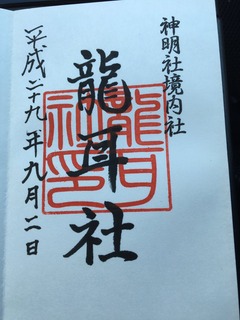 神明社境内社
龍耳社
平成二十九年九月二日
龍耳社印